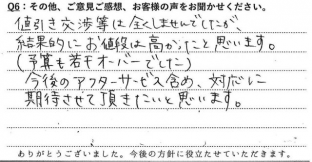 Q6：その他、ご意見ご感想、お客様の声をお聞かせください。
値引き交渉等は全くしませんでしたが
結果的にお値段は高かったと思います。
(予算も若干オーバーでした)
今後のアフターサービス含め、対応に
期待させて頂きたいと思います。
ありがとうございました。今後の方針に役立たせていただきます。